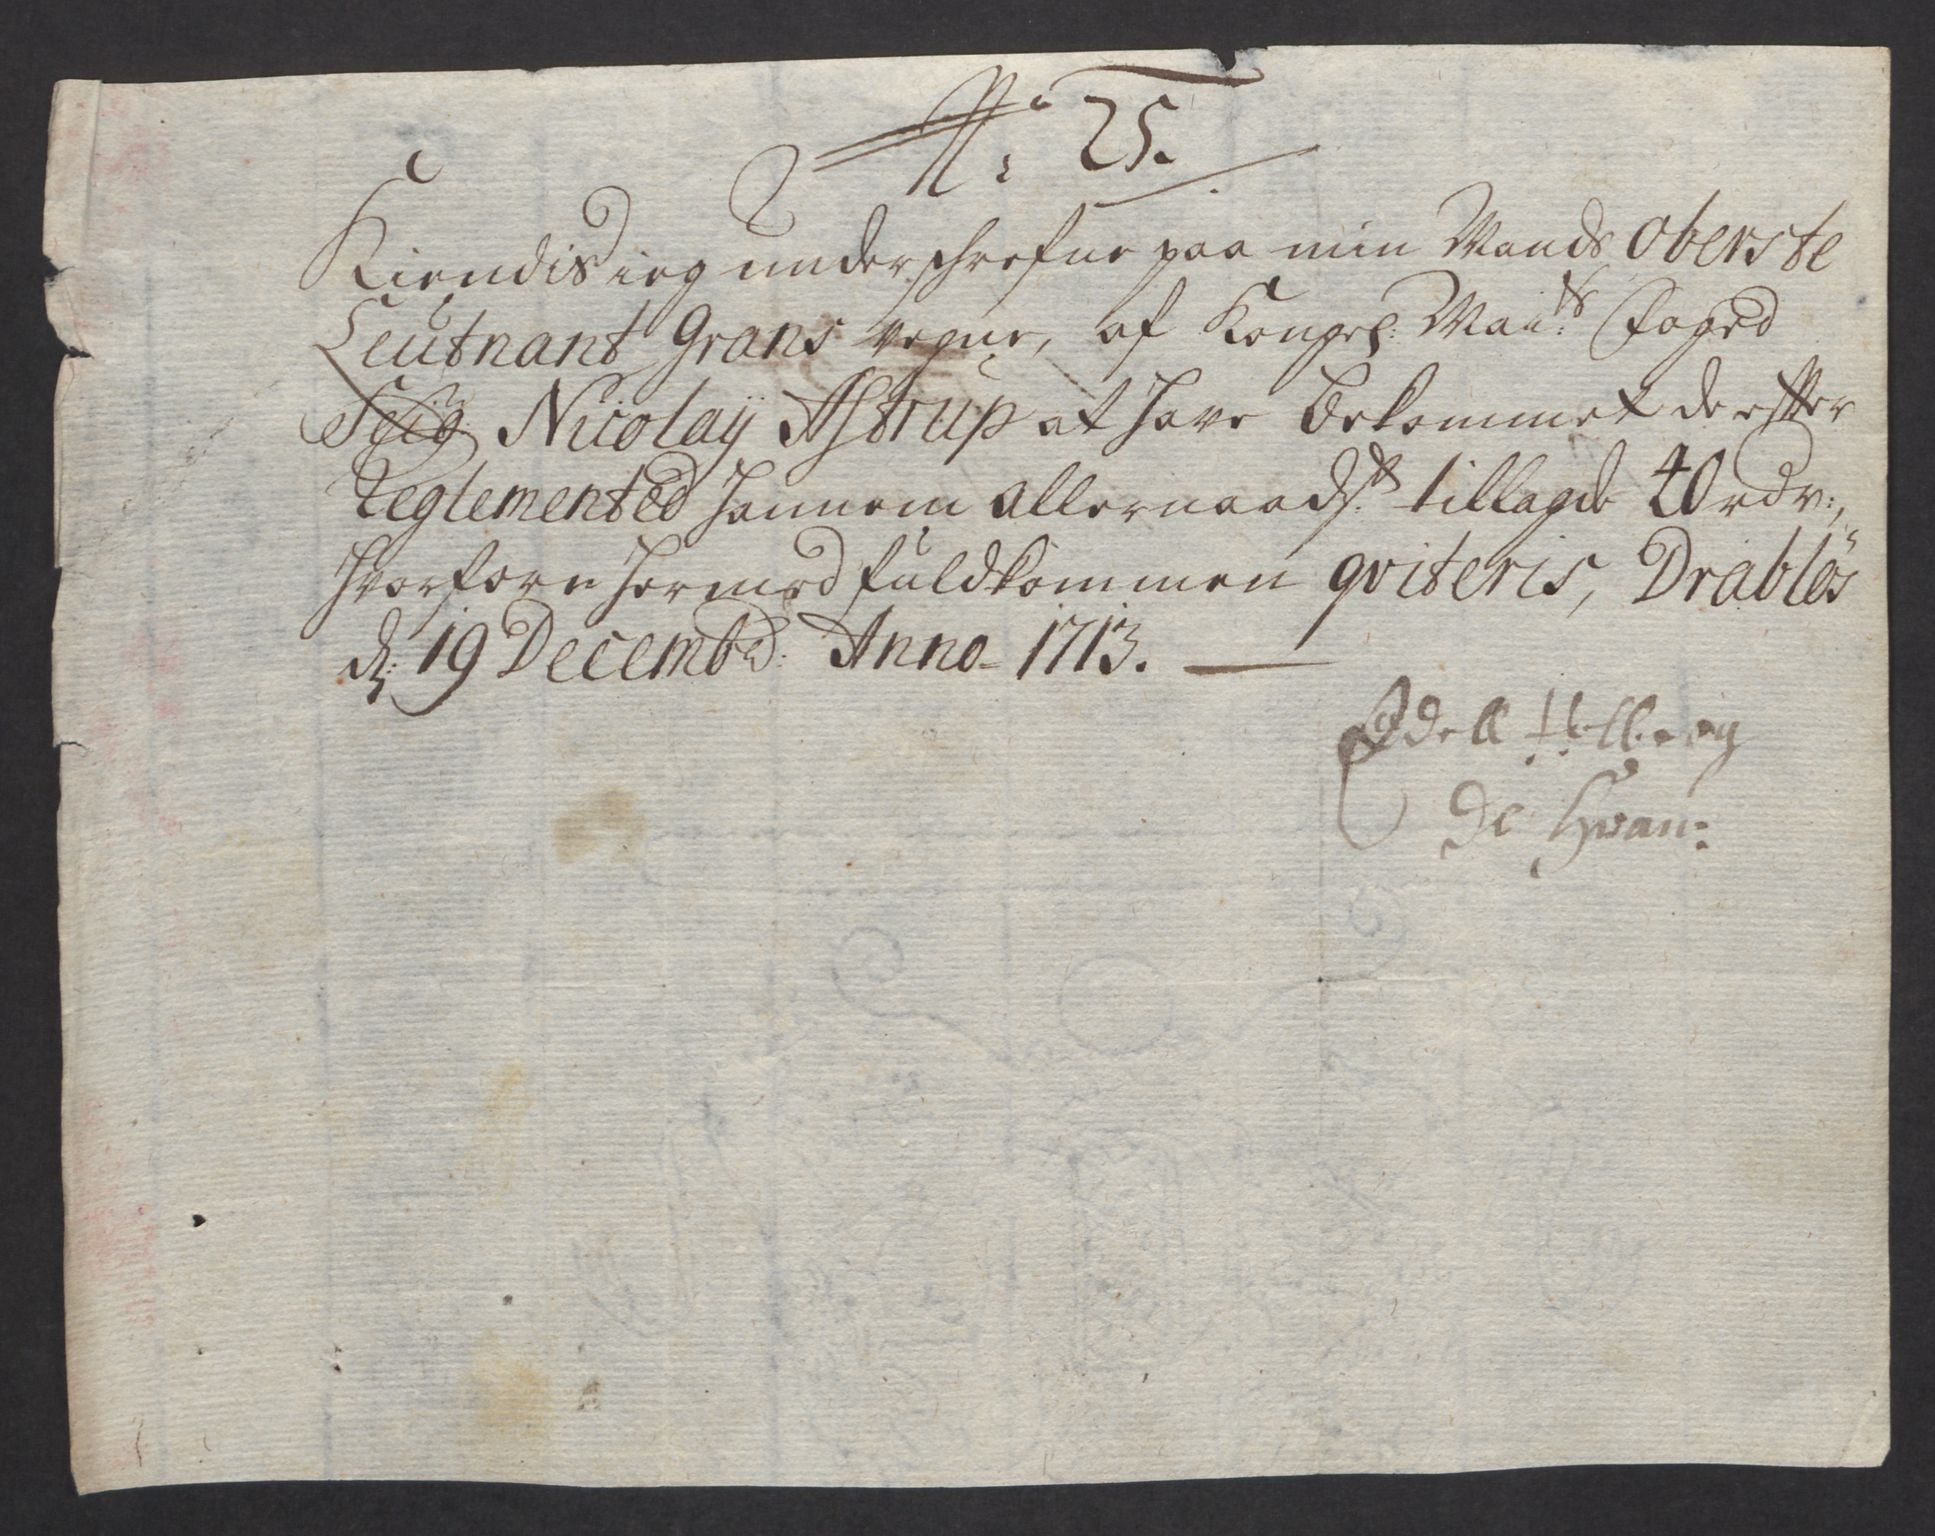 N: 25.
Kiendis ieg underschrefne paa min Mands Oberste
Leutnant Grans vegne, af Kongel: Mai:ts Foged
Seig: Nicolaÿ Astrup at have bekommet de efter
Reglemented hannem allernaadst: tillagde 40 rdr:,
hvorfore hermed fuldkommen qviteris, Drabløs
d: 19 Decembr: Anno 1713.
Edell
de